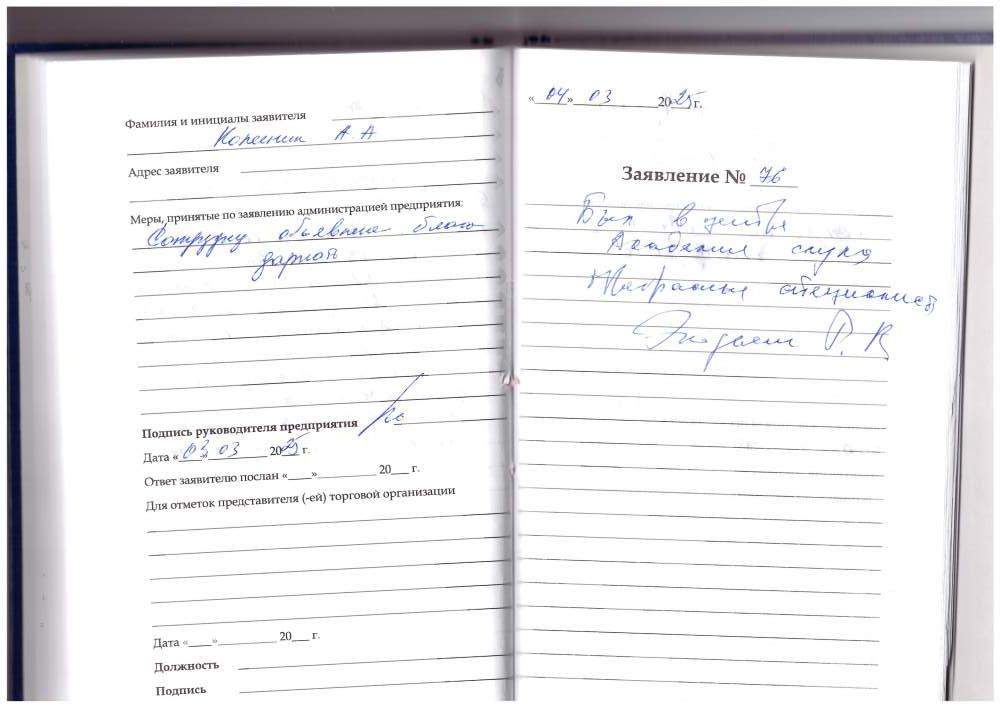 Фамилия и инициалы заявителя
А. А
Адрес заявителя
Меры, принятые по заявлению администрацией предприятия:
Сотруднику объявлена благо
дарность
Подпись руководителя предприятия
Дата «03» 03 2025 г.
Ответ заявителю послан «___»__________ 20___ г.
Для отметок представителя (-ей) торговой организации
Дата «___»__________ 20___ г.
Должность
Подпись
«04» 03 2025 г.
Заявление № 76
Был в центре
Академия слуха
Прекрасные специалисты
Р. В